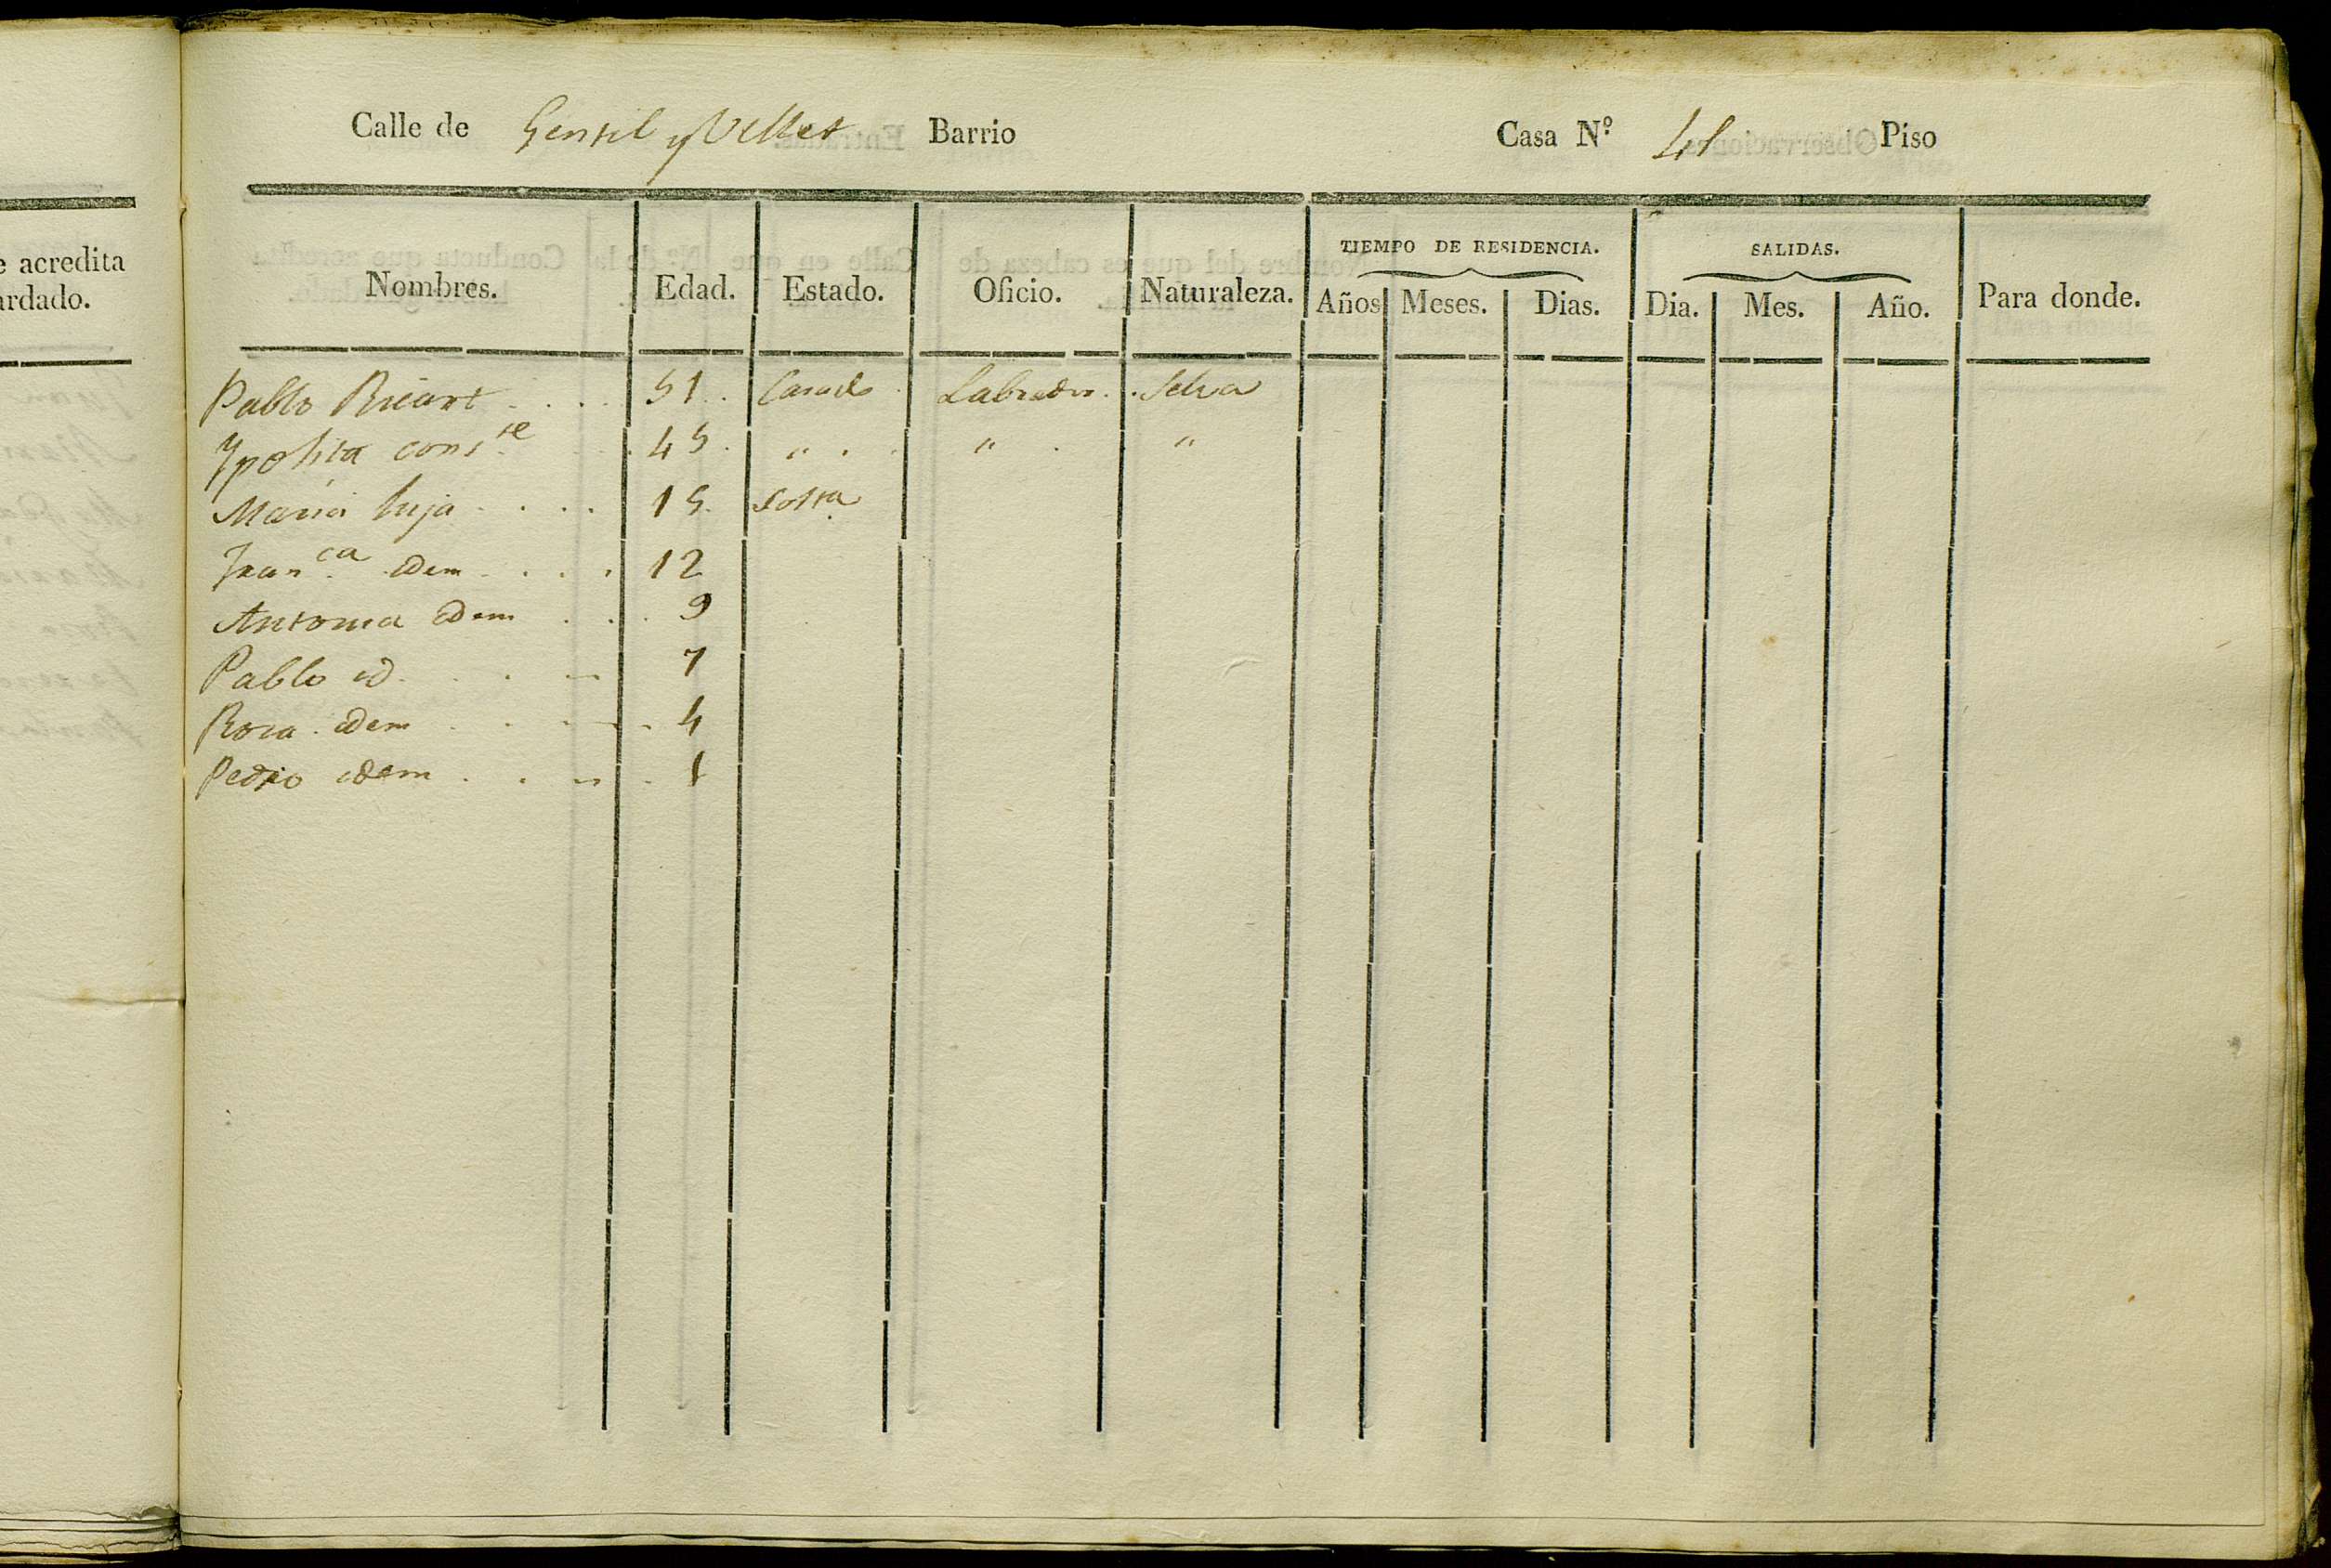 e acredita
ardado.
Calle de Gensil y Vellet Barrio Casa N.º 41 Piso
TIEMPO DE RESIDENCIA. SALIDAS.
Nombres. Edad. Estado. Oficio. Naturaleza. Años Meses. Dias. Dia. Mes. Año. Para donde.
Pablo Ricart .... 51.. Casado . Labrador. . Selva
Ypolita cons.te .. 45. " . . " . "
Maria hija .... 15. Solt.a
Fran.ca idem .... 12
Antonia idem ... 9
Pablo id. ... 7
Rosa idem ... 4
Pedro idem .... 1